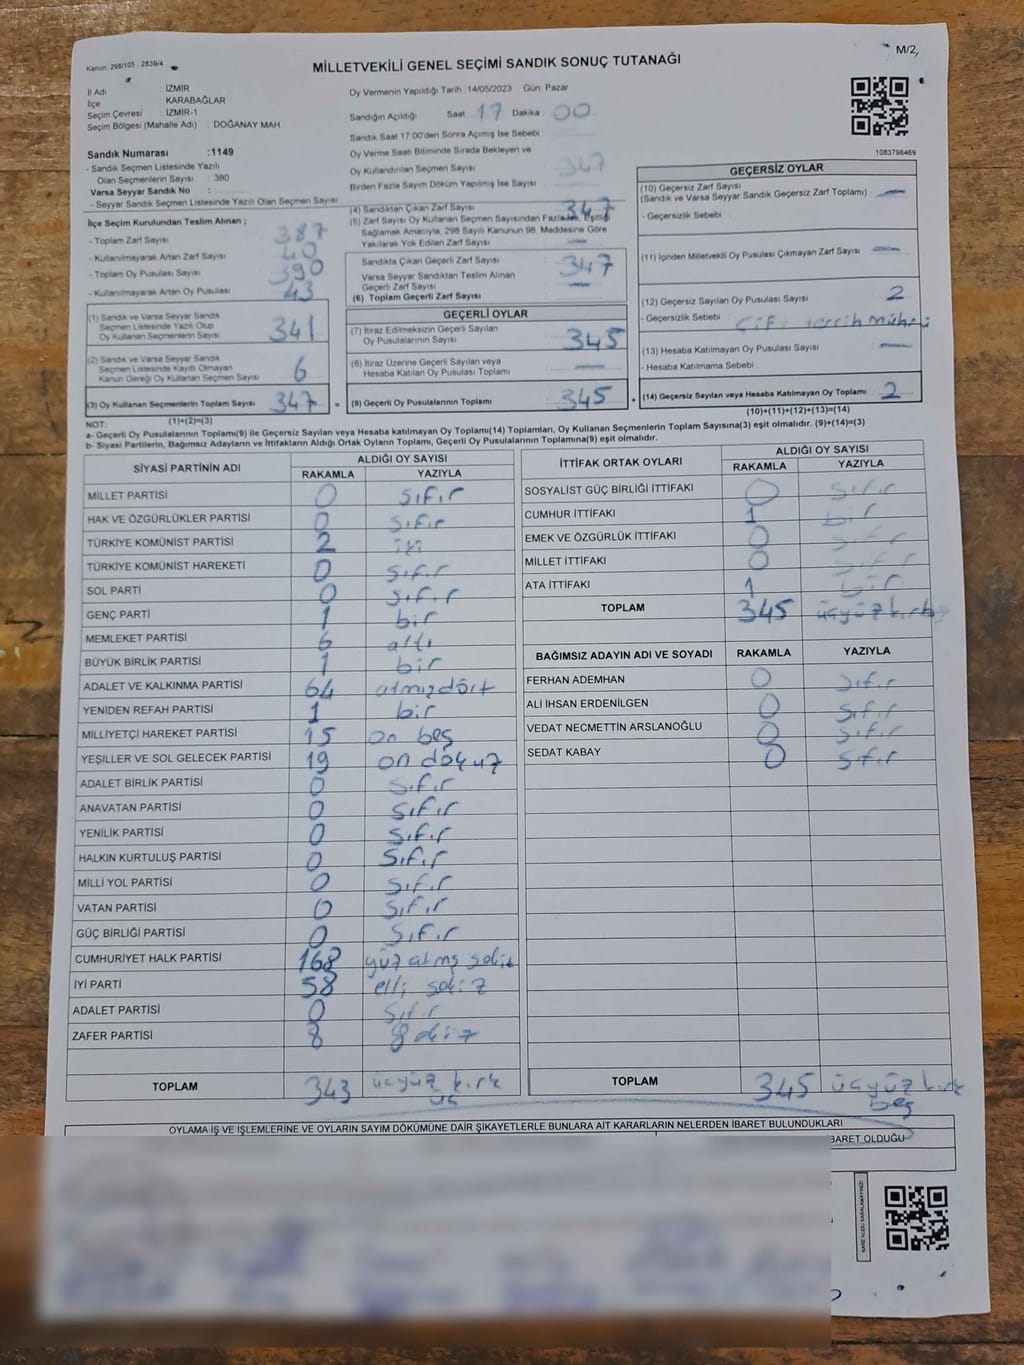 Kanun: 298/105 , 2839/4
M/2
MİLLETVEKİLİ GENEL SEÇİMİ SANDIK SONUÇ TUTANAĞI
İl Adı : İZMİR
İlçe : KARABAĞLAR
Seçim Çevresi : İZMİR-1
Seçim Bölgesi (Mahalle Adı) : DOĞANAY MAH.
Sandık Numarası :1149
- Sandık Seçmen Listesinde Yazılı
Olan Seçmenlerin Sayısı : 380
Varsa Seyyar Sandık No :
- Seyyar Sandık Seçmen Listesinde Yazılı Olan Seçmen Sayısı
İlçe Seçim Kurulundan Teslim Alınan ;
- Toplam Zarf Sayısı : 387
- Kullanılmayarak Artan Zarf Sayısı : 40
- Toplam Oy Pusulası Sayısı : 390
- Kullanılmayarak Artan Oy Pusulası : 43
(1) Sandık ve Varsa Seyyar Sandık
Seçmen Listesinde Yazılı Olup
Oy Kullanan Seçmenlerin Sayısı : 341
(2) Sandık ve Varsa Seyyar Sandık
Seçmen Listesinde Kayıtlı Olmayan
Kanun Gereği Oy Kullanan Seçmen Sayısı : 6
(3) Oy Kullanan Seçmenlerin Toplam Sayısı : 347
(1)+(2)=(3)
Oy Vermenin Yapıldığı Tarih :14/05/2023 Gün: Pazar
Sandığın Açıldığı Saat 17 Dakika 00
Sandık Saat 17:00'den Sonra Açılmış İse Sebebi
Oy Verme Saati Bitiminde Sırada Bekleyen ve
Oy Kullandırılan Seçmen Sayısı : 347
Birden Fazla Sayım Döküm Yapılmış İse Sayısı :
(4) Sandıktan Çıkan Zarf Sayısı : 347
(5) Zarf Sayısı Oy Kullanan Seçmen Sayısından Fazla ise, Eşitliği
Sağlamak Amacıyla, 298 Sayılı Kanunun 98. Maddesine Göre
Yakılarak Yok Edilen Zarf Sayısı : —
Sandıkta Çıkan Geçerli Zarf Sayısı : 347
Varsa Seyyar Sandıktan Teslim Alınan
Geçerli Zarf Sayısı : —
(6) Toplam Geçerli Zarf Sayısı :
GEÇERLİ OYLAR
(7) İtiraz Edilmeksizin Geçerli Sayılan
Oy Pusulalarının Sayısı : 345
(8) İtiraz Üzerine Geçerli Sayılan veya
Hesaba Katılan Oy Pusulası Toplamı : —
= (9) Geçerli Oy Pusulalarının Toplamı : 345
1083798469
GEÇERSİZ OYLAR
(10) Geçersiz Zarf Sayısı
(Sandık ve Varsa Seyyar Sandık Geçersiz Zarf Toplamı) : —
- Geçersizlik Sebebi :
(11) İçinden Milletvekili Oy Pusulası Çıkmayan Zarf Sayısı : —
(12) Geçersiz Sayılan Oy Pusulası Sayısı : 2
- Geçersizlik Sebebi :
(13) Hesaba Katılmayan Oy Pusulası Sayısı : —
- Hesaba Katılmama Sebebi :
+ (14) Geçersiz Sayılan veya Hesaba Katılmayan Oy Toplamı : 2
(10)+(11)+(12)+(13)=(14)
NOT:
a- Geçerli Oy Pusulalarının Toplamı(9) ile Geçersiz veya Hesaba katılmayan Oy Toplamı(14) Toplamları, Oy Kullanan Seçmenlerin Toplam Sayısına(3) eşit olmalıdır. (9)+(14)=(3)
b- Siyasi Partilerin, Bağımsız Adayların ve İttifakların Aldığı Ortak Oyların Toplamı, Geçerli Oy Pusulalarının Toplamına(9) eşit olmalıdır.
SİYASİ PARTİNİN ADI ALDIĞI OY SAYISI
RAKAMLA YAZIYLA
MİLLET PARTİSİ 0 sıfır
HAK VE ÖZGÜRLÜKLER PARTİSİ 0 sıfır
TÜRKİYE KOMÜNİST PARTİSİ 2 iki
TÜRKİYE KOMÜNİST HAREKETİ 0 sıfır
SOL PARTİ 0 sıfır
GENÇ PARTİ 1 bir
MEMLEKET PARTİSİ 6 altı
BÜYÜK BİRLİK PARTİSİ 1 bir
ADALET VE KALKINMA PARTİSİ 64 atmışdört
YENİDEN REFAH PARTİSİ 1 bir
MİLLİYETÇİ HAREKET PARTİSİ 15 on beş
YEŞİLLER VE SOL GELECEK PARTİSİ 19 on dokuz
ADALET BİRLİK PARTİSİ 0 sıfır
ANAVATAN PARTİSİ 0 sıfır
YENİLİK PARTİSİ 0 sıfır
HALKIN KURTULUŞ PARTİSİ 0 sıfır
MİLLİ YOL PARTİSİ 0 sıfır
VATAN PARTİSİ 0 sıfır
GÜÇ BİRLİĞİ PARTİSİ 0 sıfır
CUMHURİYET HALK PARTİSİ 168 yüz atmış sekiz
İYİ PARTİ 58 elli sekiz
ADALET PARTİSİ 0 sıfır
ZAFER PARTİSİ 8 sekiz
TOPLAM 343 üçyüz kırk
üç
İTTİFAK ORTAK OYLARI ALDIĞI OY SAYISI
RAKAMLA YAZIYLA
SOSYALİST GÜÇ BİRLİĞİ İTTİFAKI 0 sıfır
CUMHUR İTTİFAKI 1 bir
EMEK VE ÖZGÜRLÜK İTTİFAKI 0 sıfır
MİLLET İTTİFAKI 0 sıfır
ATA İTTİFAKI 1 bir
TOPLAM 345 üçyüz kırkbeş
BAĞIMSIZ ADAYIN ADI VE SOYADI RAKAMLA YAZIYLA
FERHAN ADEMHAN 0 sıfır
ALİ İHSAN ERDENİLGEN 0 sıfır
VEDAT NECMETTİN ARSLANOĞLU 0 sıfır
SEDAT KABAY 0 sıfır
TOPLAM 345 üçyüz kırk
beş
OYLAMA İŞ VE İŞLEMLERİNE VE OYLARIN SAYIM DÖKÜMÜNE DAİR ŞİKAYETLERLE BUNLARA AİT KARARLARIN NELERDEN İBARET BULUNDUKLARI
İBARET OLDUĞU
KARE KODU KARALAMAYINIZ!